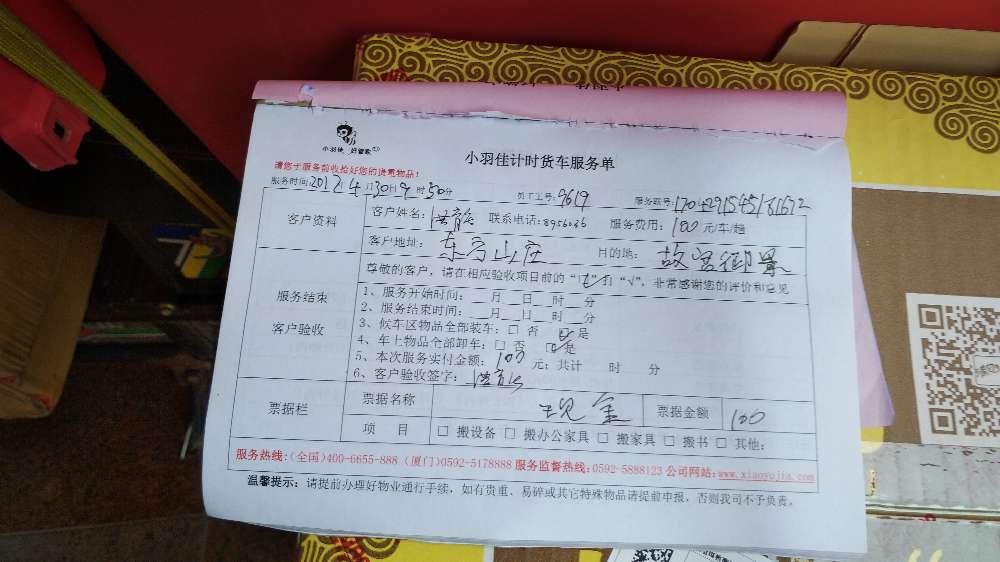 小羽佳 好管家
小羽佳计时货车服务单
请您于服务前收拾好您的贵重物品!
服务时间:2017年4月30日9时50分 员工工号:9619 服务账号:
客户资料 客户姓名: 联系电话:8956066 服务费用:100元/车/趟
客户地址:东方山庄 目的地:故宫御景
尊敬的客户,请在相应验收项目前的“□”打“√”,非常感谢您的评价和意见
服务结束
客户验收
1、服务开始时间:__月__日__时__分
2、服务结束时间:__月__日__时__分
3、候车区物品全部装车:□ 否 ☑是
4、车上物品全部卸车:□ 否 ☑是
5、本次服务实付金额:100元;共计 时 分
6、客户验收签字:
票据栏 票据名称 现金 票据金额 100
项 目 □ 搬设备 □ 搬办公家具 □ 搬家具 □ 搬书 □ 其他:
服务热线:(全国)400-6655-888 (厦门)0592-5178888 服务监督热线:0592-5888123 公司网站:www.xiaoyujia.com
温馨提示:请提前办理好物业通行手续,如有贵重、易碎或其它特殊物品请提前申报,否则我司不予负责。